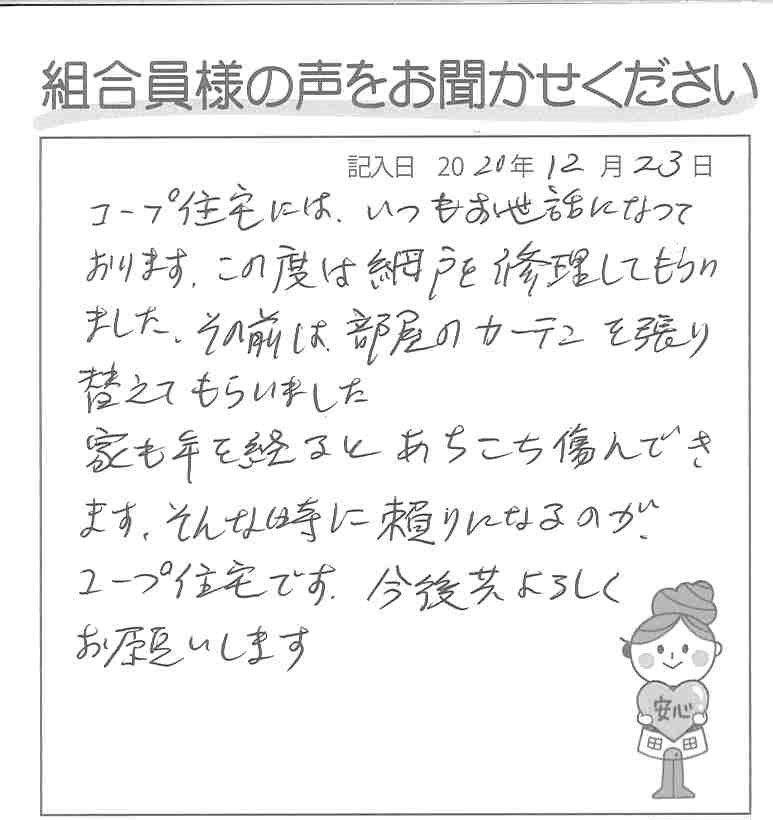 組合員様の声をお聞かせください
記入日 2020年12月23日
コープ住宅には、いつもお世話になって
おります。この度は網戸を修理してもらい
ました。その前は、部屋のカーテンを張り
替えてもらいました
家も年を経るとあちこち傷んでき
ます。そんな時に頼りになるのが、
コープ住宅です。今後共よろしく
お願いします
安心